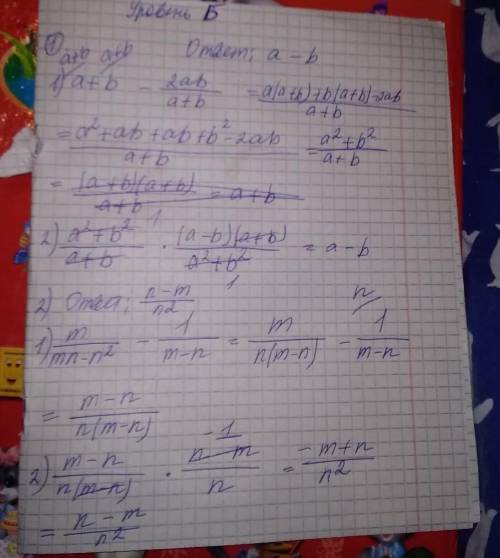 Уровень Б
① Ответ: a - b
a+b a+b
1) a + b - 2ab/(a+b) = (a(a+b)+b(a+b)-2ab)/(a+b)
= (a²+ab+ab+b²-2ab)/(a+b) = (a²+b²)/(a+b)
= ((a+b)(a+b))/(a+b) = a+b
2) (a²+b²)/(a+b) · ((a-b)(a+b))/(a²+b²) = a-b
2) Ответ: (n-m)/n²
1) m/(mn-n²) - 1/(m-n) = m/(n(m-n)) - 1/(m-n)
= (m-n)/(n(m-n))
2) (m-n)/(n(m-n)) · (n-m)/n = (-m+n)/n²
= (n-m)/n²